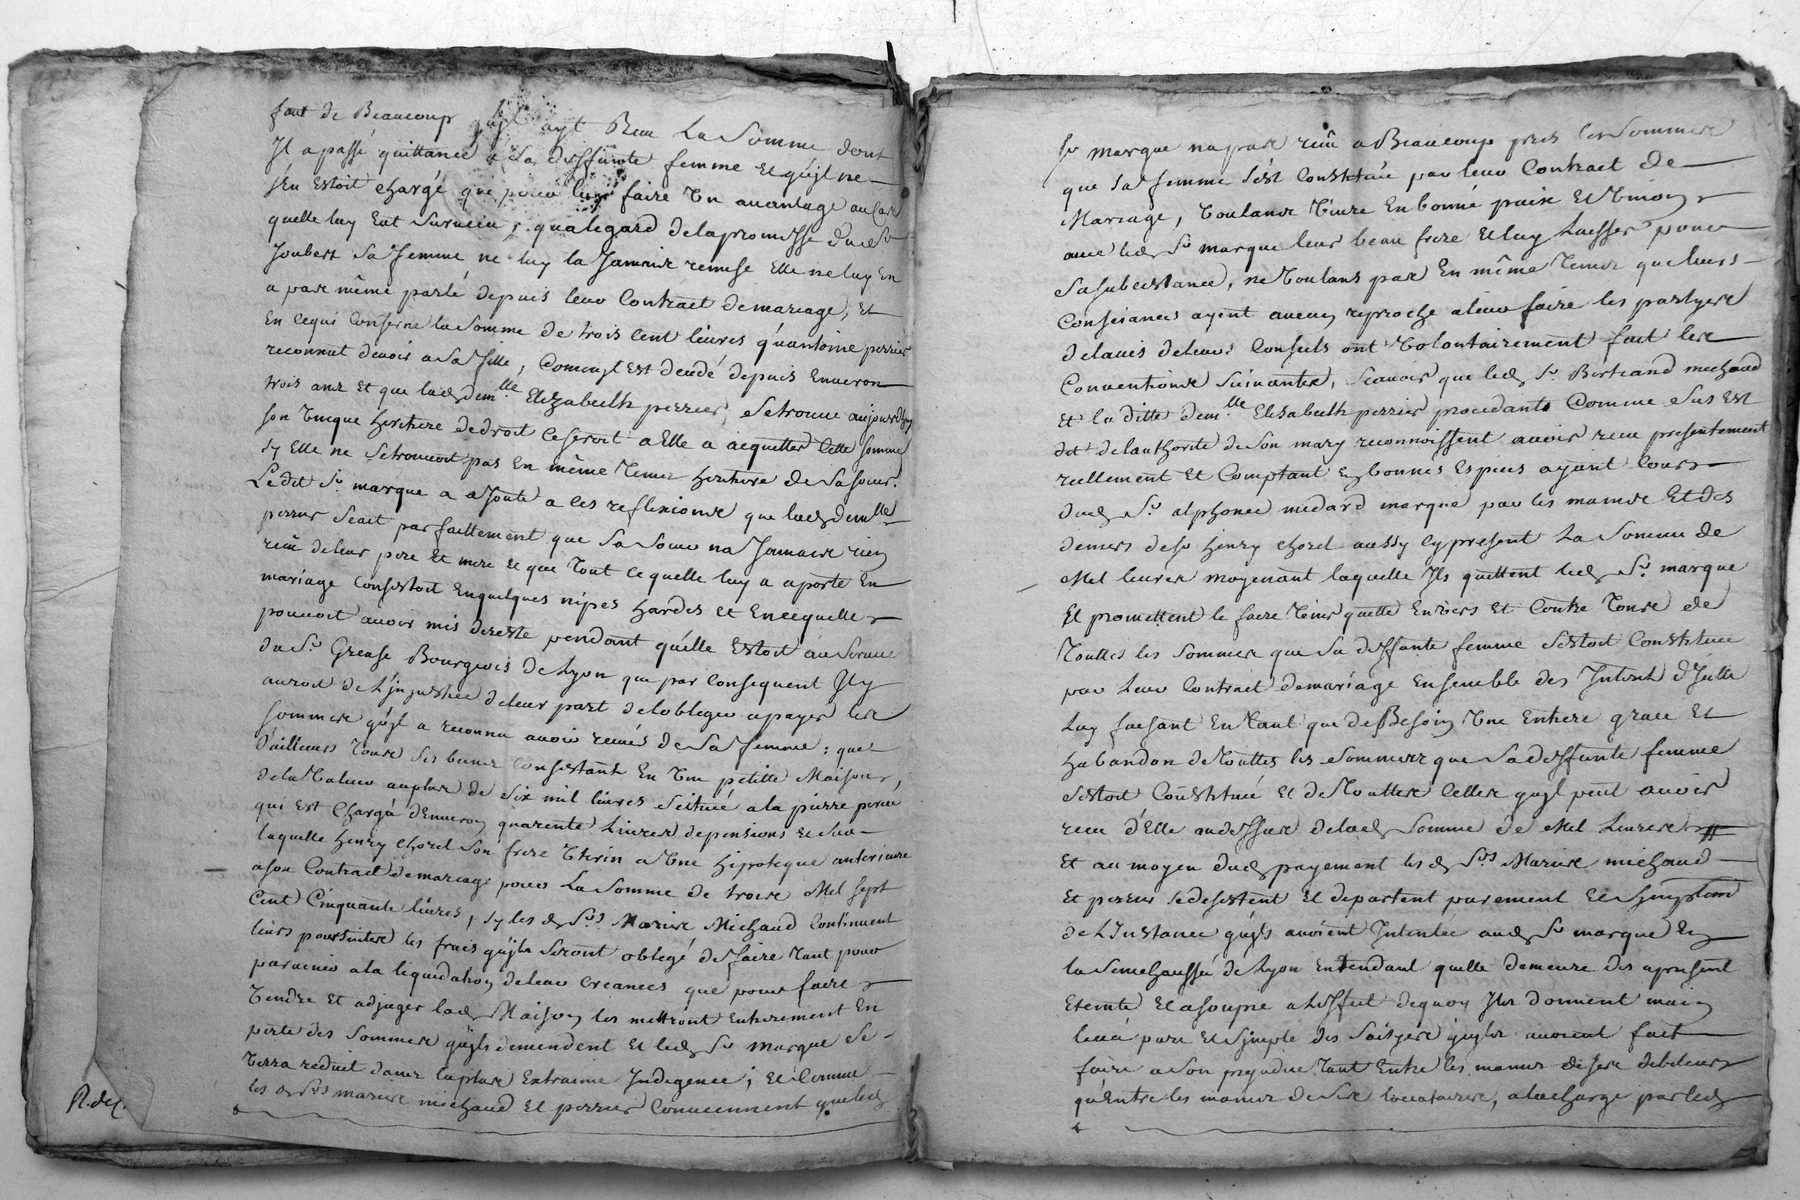 faut de Beaucoup qu'jl ayt Receu La Somme dont
Jl a passé quittance a Sa deffunte femme et qu'jl ne
s'En Estoit chargé que pour luy faire Vn auantage au Cas
quelle luy Eut Suruecu, qua legard de la promesse dud Sr
Joubert Sa femme ne luy la Jamais remise Elle ne luy En
a pas même parlé depuis leur Contract de mariage, Et
En cequi Conserne la Somme de trois Cent liures qu'antoine perrier
reconnut deuoir a Sa fille, Comme jl est decedé depuis Enuiron
trois ans Et que lad demlle Elizabeth perrier se trouue aujourdhuy
son Vnique heritiere de droit Ce seroit a Elle a acquitter Cette Somme
sy Elle ne se trouuoit pas En même Tems heritiere de Sa soeur.
Ledit Sr marque a ajouté a Ces reflexions que lad demlle
perrier Scait parfaittement que Sa Soeur na Jamais rien
reçû de leur pere Et mere et que Tout ce quelle luy a aporté En
mariage Consistoit En quelques nipes hardes Et En ce quelle
pouuoit auoir mis de reste pendant qu'elle Estoit au Seruice
du Sr Grease Bourgeois de Lyon que par Consequent Jl y
auroit de L'jnjustice de leur part de lobliger a payer les
sommes qu'jl a reconnu auoir receües de Sa femme; que
d'ailleurs Tous ses biens Consistant En Vne petitte Maison,
de la Valeur au plus de Six mil liures scituée a la pierre percée
qui Est Chargée d'Enuiron quarente Liures de pensions Et Sur
laquelle henry chorel Son frere Vterin a Vne hipoteque anterieure
a son Contract de mariage pour La Somme de trois Mil Sept
Cent Cinquante liures, sy les d Srs Mariés Michaud Continuent
leurs poursuittes les frais qu'jls Seront obligé de faire Tant pour
paruenir a la liquidation de leur Creances que pour faire
Vendre Et adjuger lad Maison les mettront Entierement En
perte des Sommes qu'jls demendent Et led Sr Marque Se
Verra reduit dans la plus Extraime Jndigence; Et Comme
les d Srs mariés michaud Et perrier Conuiennent que led
R. del.
Sr marque na pas reçû a Beaucoup pres les Sommes
que Sa femme s'est Constituée par leur Contract de
Mariage, Voulant Viure En bonne paix Et Vnion
auec led Sr marque leur beau frere Et luy Laisser pour
Sa subsistance, ne Voulant pas En même Tems que leurs
Consciances ayent aucun reproche a leur faire les partyes
de lauis de leurs Conseils ont Volontairement fait les
Conuentions Suiuantes, Scauoir que led Sr Bertrand michaud
Et la ditte demlle Elizabeth perrier procedants Comme Sus Est
dit de lauthorité de Son mary reconnoissent auoir receu presentement
reellement Et Comptant En bonnes Especes ayant Cours
dud Sr alphonce medard marque par les mains Et des
deniers de Sr henry chorel aussy Cy present La Somme de
Mil liures moyenant laquelle Jls quittent led Sr marque
Et promettent le faire Tenir quitte Enuers Et Contre Tous de
Touttes les Sommes que Sa deffunte femme s'estoit Constituée
par Leur Contract de mariage Ensemble des Jnterets d'Jcelle
Luy faisant En Tant que de Besoin Vne Entiere grace Et
habandon de Touttes les Sommes que Sa deffunte femme
s'estoit Constitué Et de Touttes Celles qu'jl peut auoir
receu d'Elle au dessus de lad Somme de Mil Liures
Et au moyen dud payement les d Srs Mariés michaud
Et perrier se desistent Et departent purement Et Simplement
de L'Jnstance qu'jls auoient Jntentée aud Sr marque En
la Senechaussée de Lyon Entendant quelle demeure des apresent
Eteinte Et assoupie a L'Effect de quoy Jls donnent main
leuée pure Et Simple des Saisyes qu'jls auoient fait
faire a Son prejudice Tant Entre les mains de Ses debiteurs
qu'Entre les mains de Ses locataires, a la charge par led